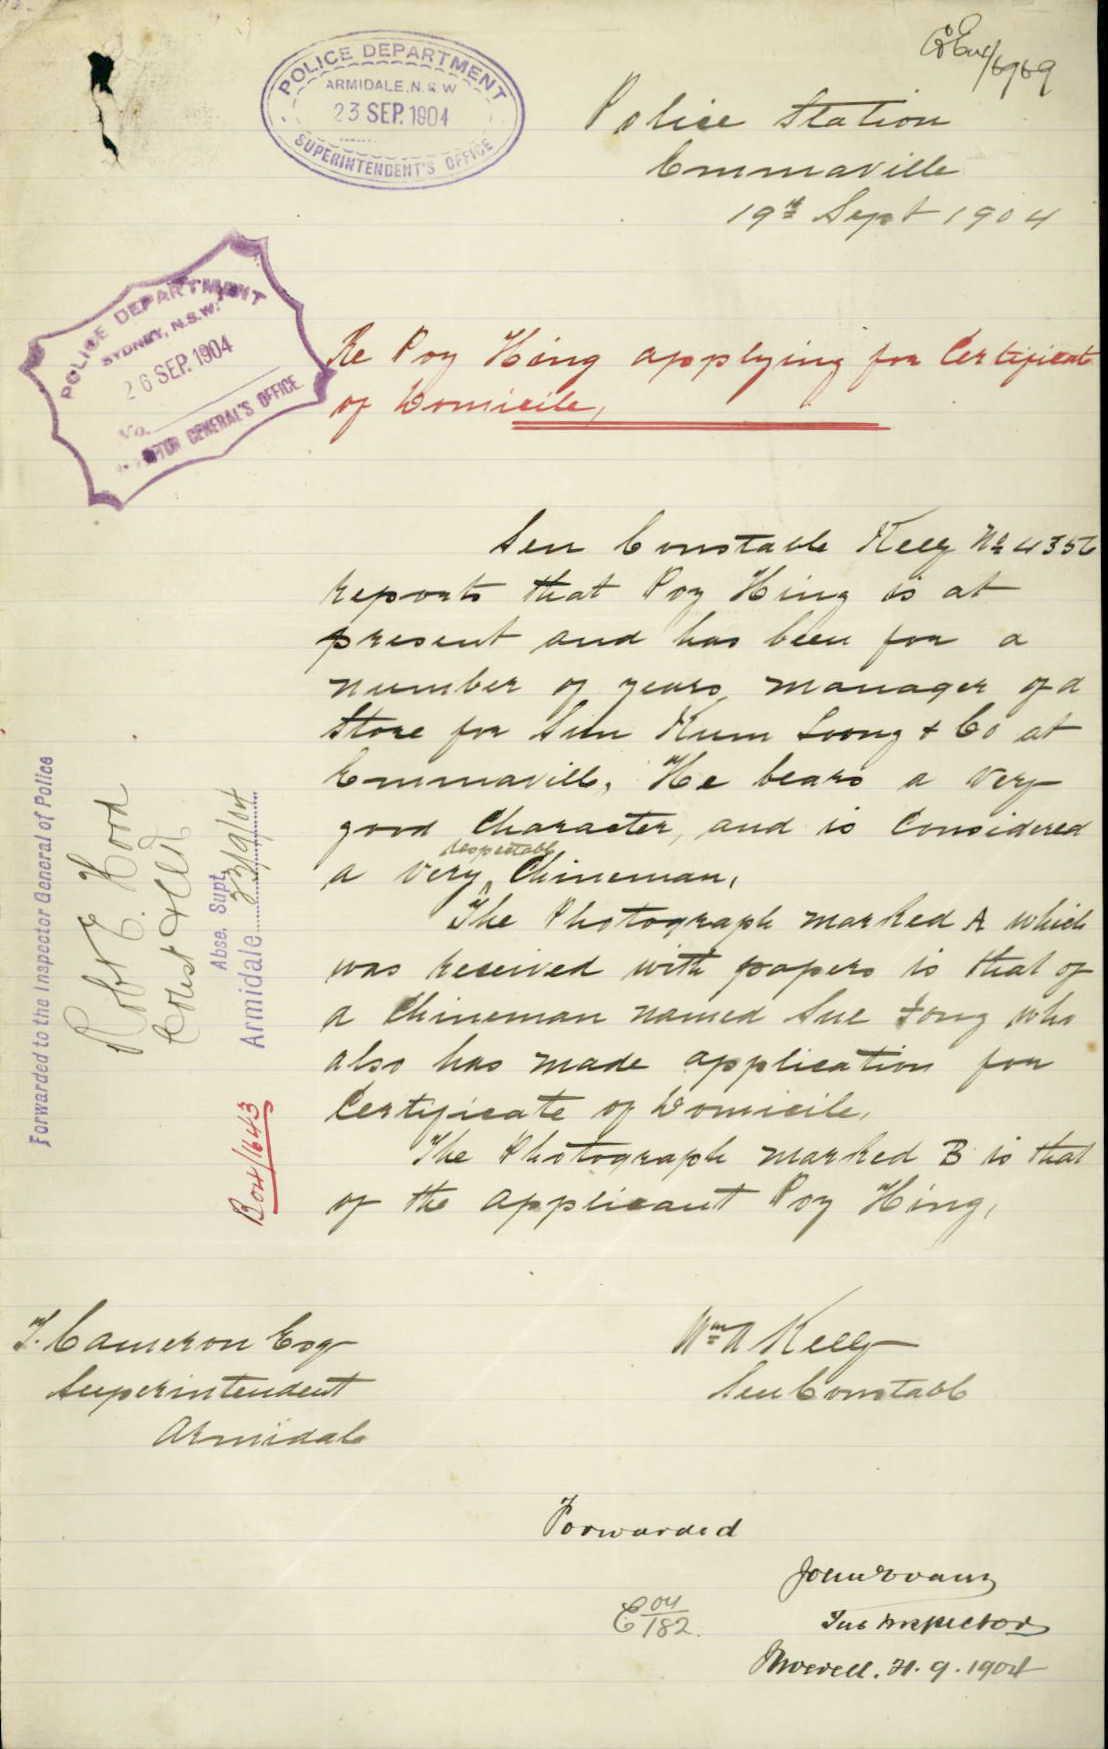 POLICE DEPARTMENT
ARMIDALE, N.S.W
23 SEP. 1904
SUPERINTENDENT'S OFFICE
Police Station
Emmaville
19th Sept 1904
POLICE DEPARTMENT
SYDNEY, N.S.W.
26 SEP. 1904
No.
GENERAL'S OFFICE
Re Poy Hing applying for Certificate
of Domicile,
Sen Constable Kelly No 4356
reports that Poy Hing is at
present and has been for a
number of years manager of a
Store for Sun Kum Loong & Co at
Emmaville, He bears a very
good Character, and is Considered
a very respectable Chineman,
The Photograph marked A which
was received with papers is that of
a Chineman named Sue Fong who
also has made application for
Certificate of Domicile,
The Photograph marked B is that
of the applicant Poy Hing,
Forwarded to the Inspector General of Police
Robt E. Hood
Abse. Supt.
Armidale 23/9/04
B04/1643
T. Cameron Esq
Superintendent
Armidale
Wm A Kelly
Sen Constable
Forwarded
John Evans
Sub Inspector
Inverell. 21.9.1904
E 04/182.